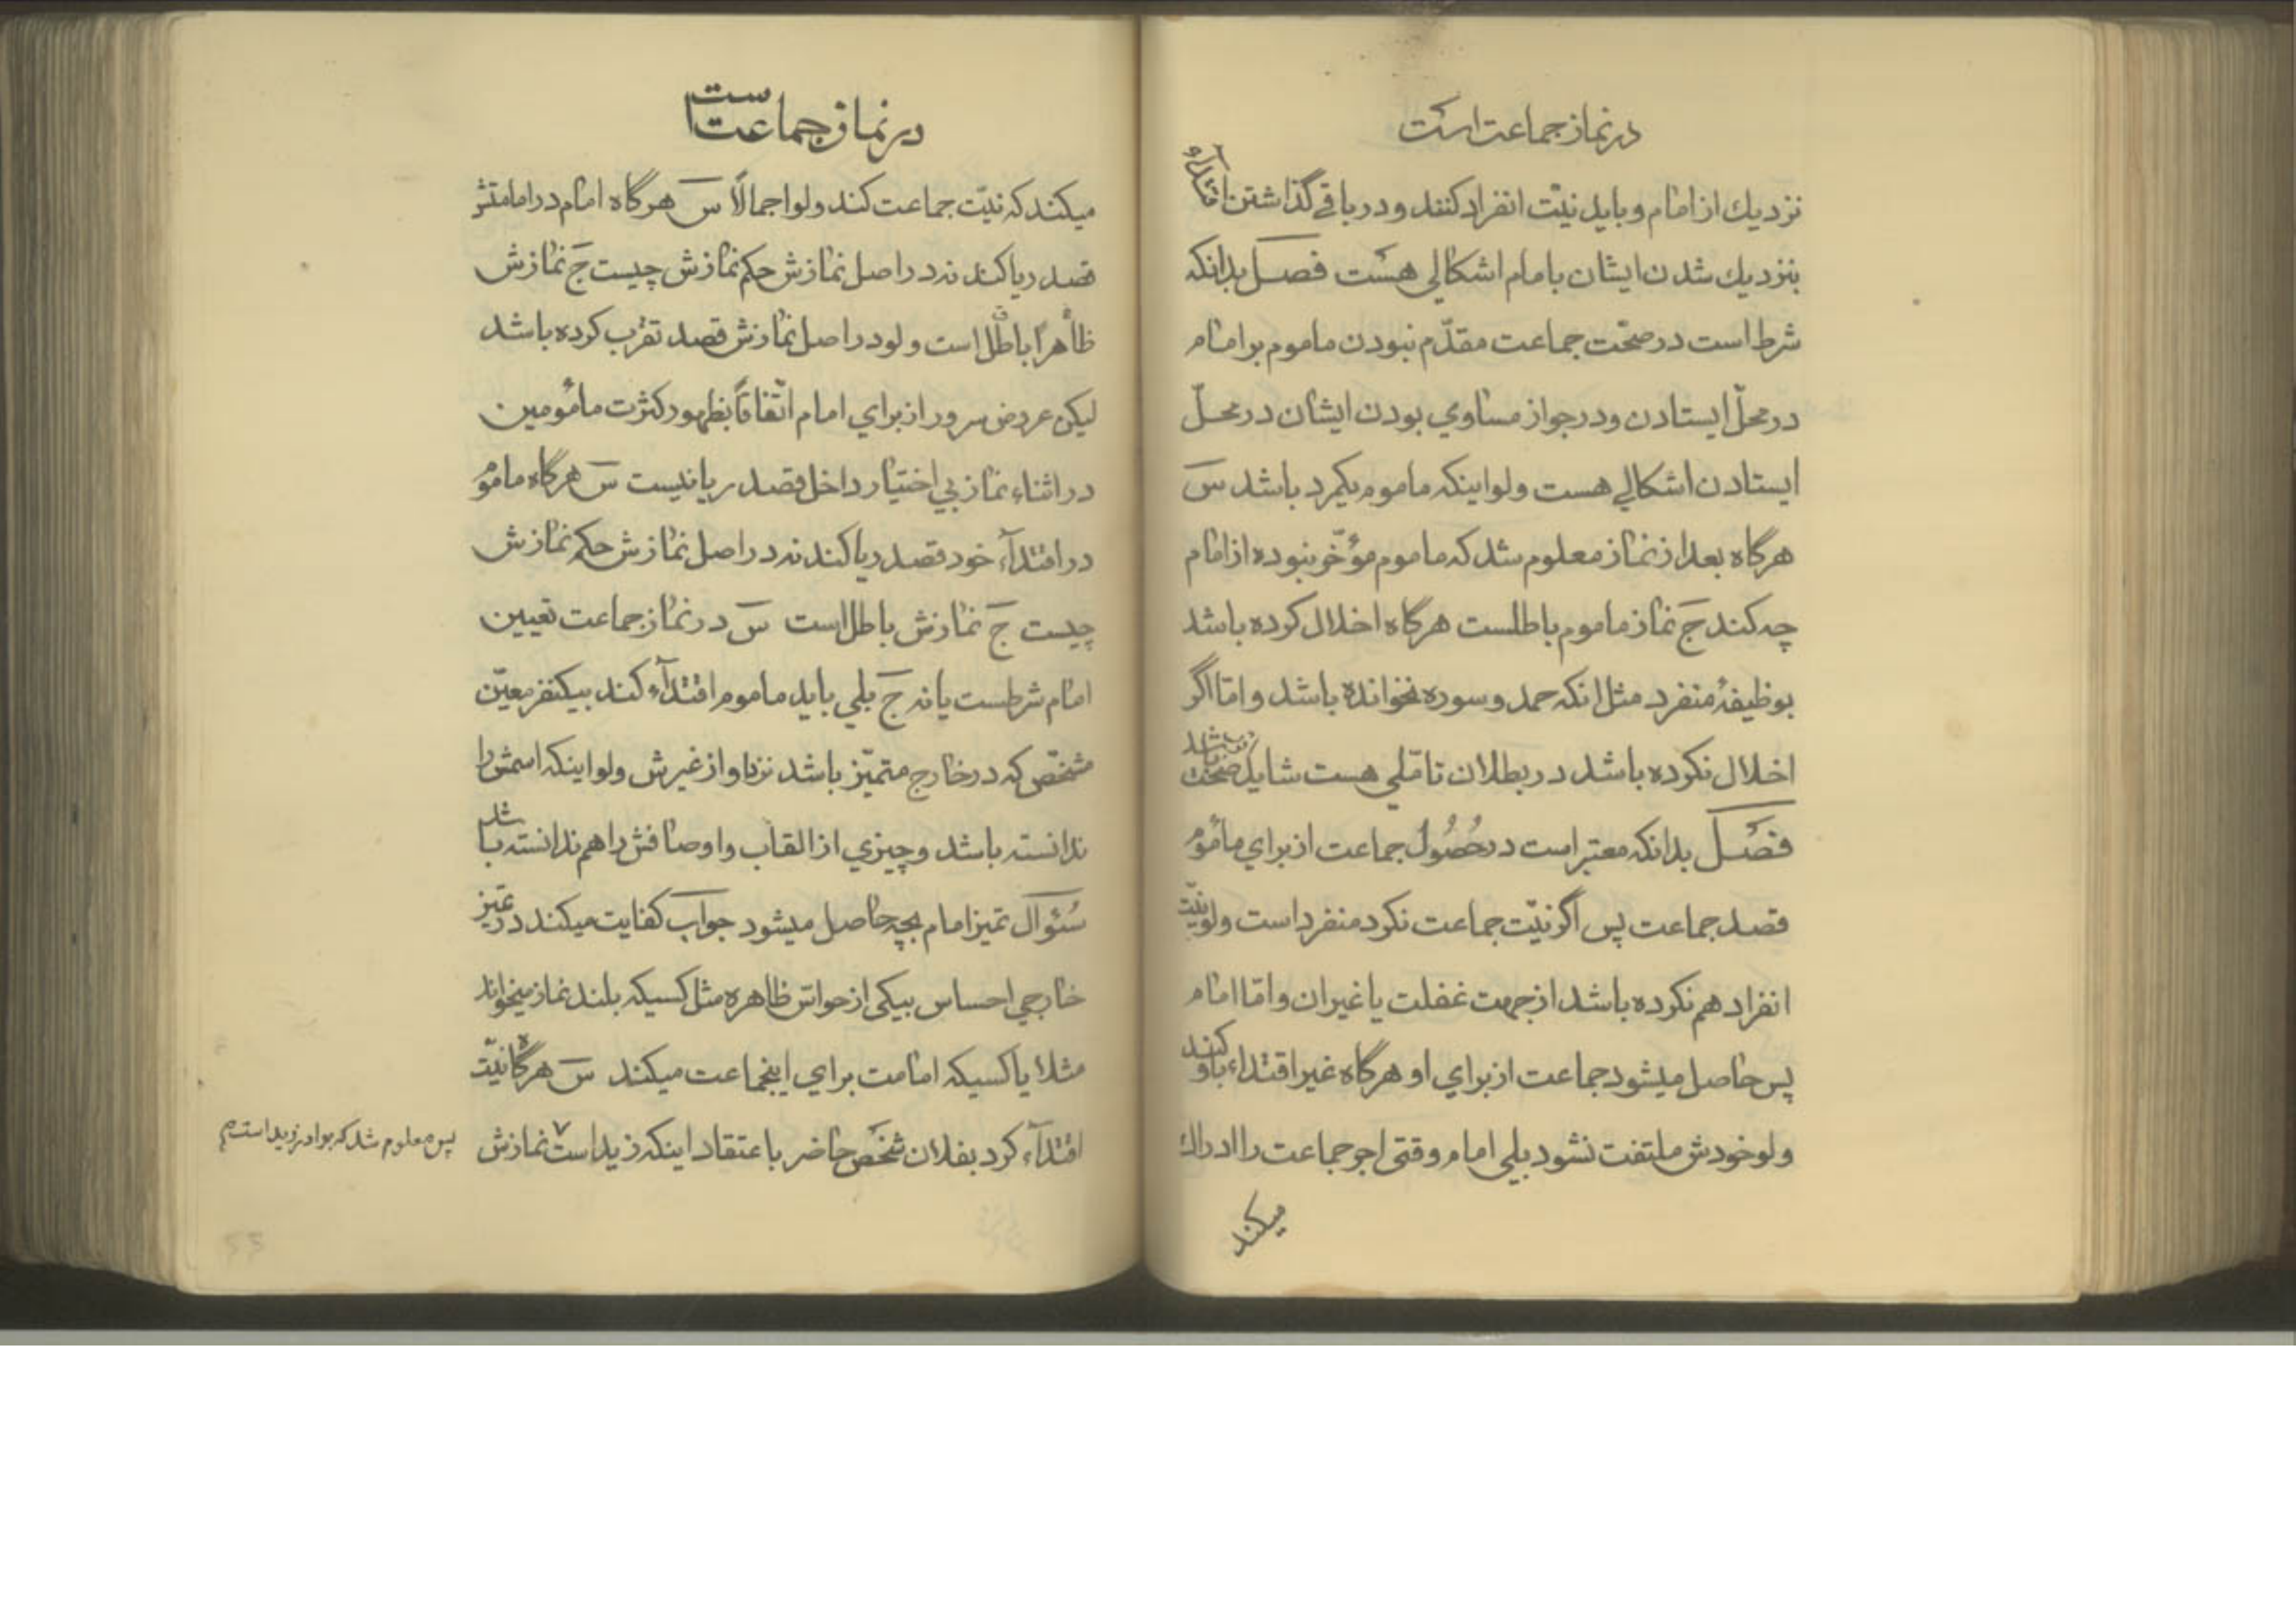 در نماز جماعت است
نزدیك از امام و باید نیّت انفراد کنند و در باقے گذاشتن اقتدآء
بنزدیك شدن ایشان بامام اشکالی هست فصل بدانکه
شرط است در صحّت جماعت مقدّم نبودن ماموم بر امام
در محلّ ایستادن و در جواز مساوي بودن ایشان در محلّ
ایستادن اشکالے هست ولو اینکه ماموم یکمرد باشد سَ
هرگاه بعد از نماز معلوم شد که ماموم مؤخّر نبوده از امام
چه کند جَ نماز ماموم باطلست هرگاه اخلال کرده باشد
بوظیفۀ منفرد مثل انکه حمد و سوره نخوانده باشد و امّا اگر
اخلال نکرده باشد در بطلان تامّلي هست شاید صحّت باشد
فصل بدانکه معتبر است در حُصُول جماعت از براي مأموم
قصد جماعت پس اگر نیّت جماعت نکرد منفرد است ولو نیّت
انفراد هم نکرده باشد از جهت غفلت یا غیر ان و امّا امام
پس حاصل میشود جماعت از براي او هرگاه غیر اقتداء باو کنند
ولو خودش ملتفت نشود بلی امام وقتی اجر جماعت را ادراك
میکند
در نماز جماعت است
میکند که نیّت جماعت کند ولو اجمالًا سَ هرگاه امام در امامتش
قصد ریا کند نه در اصل نمازش حکم نمازش چیست جَ نمازش
ظاهرًا باطل است ولو در اصل نمازش قصد تقرّب کرده باشد
لیکن عروض سرور از براي امام اتّفاقاً بظهور کثرت مأمومین
در اثناء نماز بي اختیار داخل قصد ریا نیست سَ هرگاه ماموم
در اقتدآء خود قصد ریا کند نه در اصل نمازش حکم نمازش
چیست جَ نمازش باطل است سَ در نماز جماعت تعیین
امام شرطست یا نه جَ بلي باید ماموم اقتدآء کند بیکنفر معیّن
مشخّص که در خارج متمیّز باشد نزد او از غیرش ولو اینکه اسمش را
ندانسته باشد و چیزي از القاب و اوصافش را هم ندانسته باشد
سُئوال تمیز امام بچه حاصل میشود جواب کفایت میکند در تمیز
خارجي احساس بیکی از حواسّ ظاهره مثل کسیکه بلند نماز میخواند
مثلا یا کسیکه امامت براي اینجماعت میکند سَ هرگاه نیّت
اقتدآء کرد بفلان شخص حاضر باعتقاد اینکه زید است نمازش
پس معلوم شد که برادر زید است م